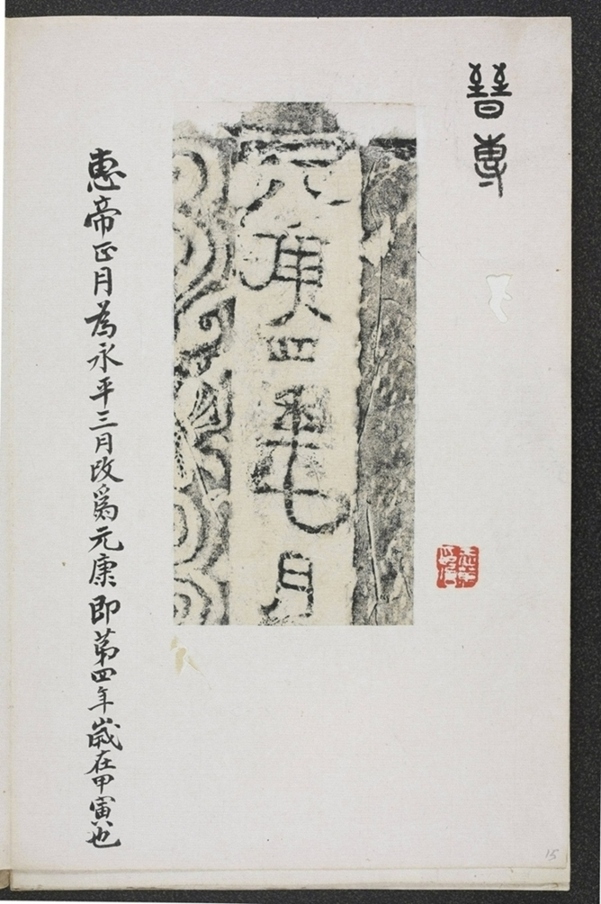 晉專
元康四年七月
惠帝正月為永平三月改爲元康即第四年歲在甲寅也
15